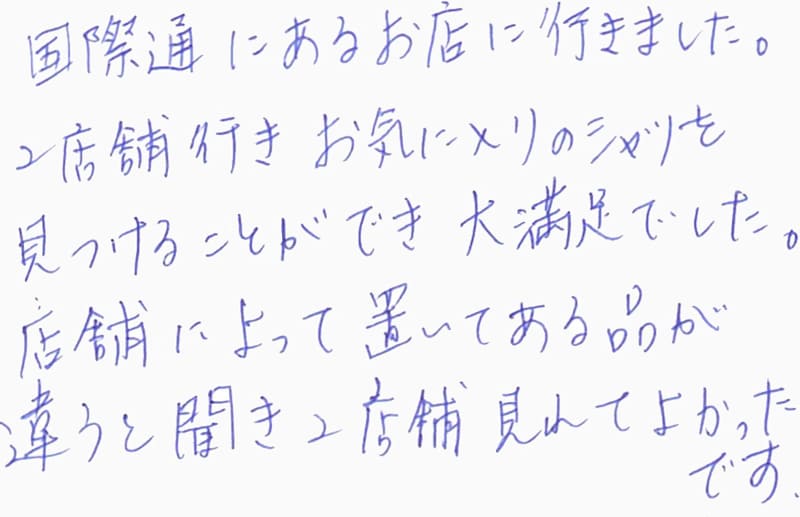 国際通にあるお店に行きました。
2店舗行きお気に入りのシャツを
見つけることができ大満足でした。
店舗によって置いてある品が
違うと聞き2店舗見れてよかった
です.